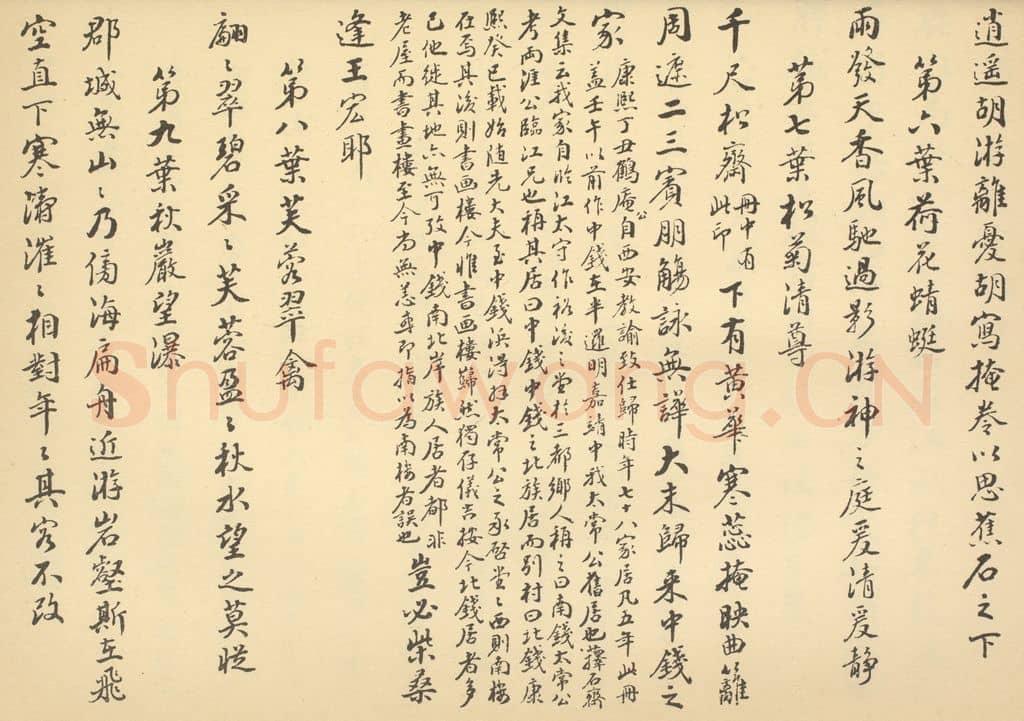 逍遥胡游離憂胡寫掩卷以思蕉石之下
第六葉荷花蜻蜓
雨發天香風馳過影游神之庭爰清爰静
第七葉松菊清尊
千尺松齋冊中有此印下有黄華寒蕊掩映曲籬
周遮二三賓朋觴詠無譁大末歸来中錢之
家康熙丁丑鶴庵公自西安教諭致仕歸時年七十八家居凡五年此冊
蓋壬午以前作中錢左半邏明嘉靖中我太常公舊居也蘀石齋
文集云我家自臨江太守作裕後之堂於三都鄉人稱之曰南錢太常公
考兩淮公臨江兄也稱其居曰中錢中錢之北族居而别村曰北錢康
熙癸巳載始随先大夫至中錢浜得拜太常公之承啓堂堂西則南樓
在焉其後則書画樓今惟書画樓巋然獨存儀吉按今北錢居者多
已他徙其地亦無可攷中錢南北岸族人居者都非
老屋而書畫樓至今尚無恙或即指以為南樓者誤也豈必柴桑
逢王宏耶
第八葉芙蓉翠禽
翩翩翠碧采采芙蓉盈盈秋水望之莫從
第九葉秋巖望瀑
郡城無山山乃傍海扁舟近游岩壑斯在飛
空直下寒濤漼漼相對年年其容不改
Shufawang.CN